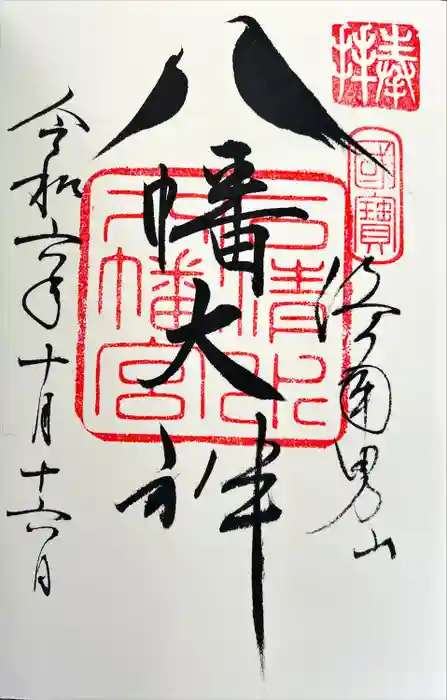 奉拝
國寶
洛南男山
八幡大神
石清水八幡宮
令和六年十月十六日